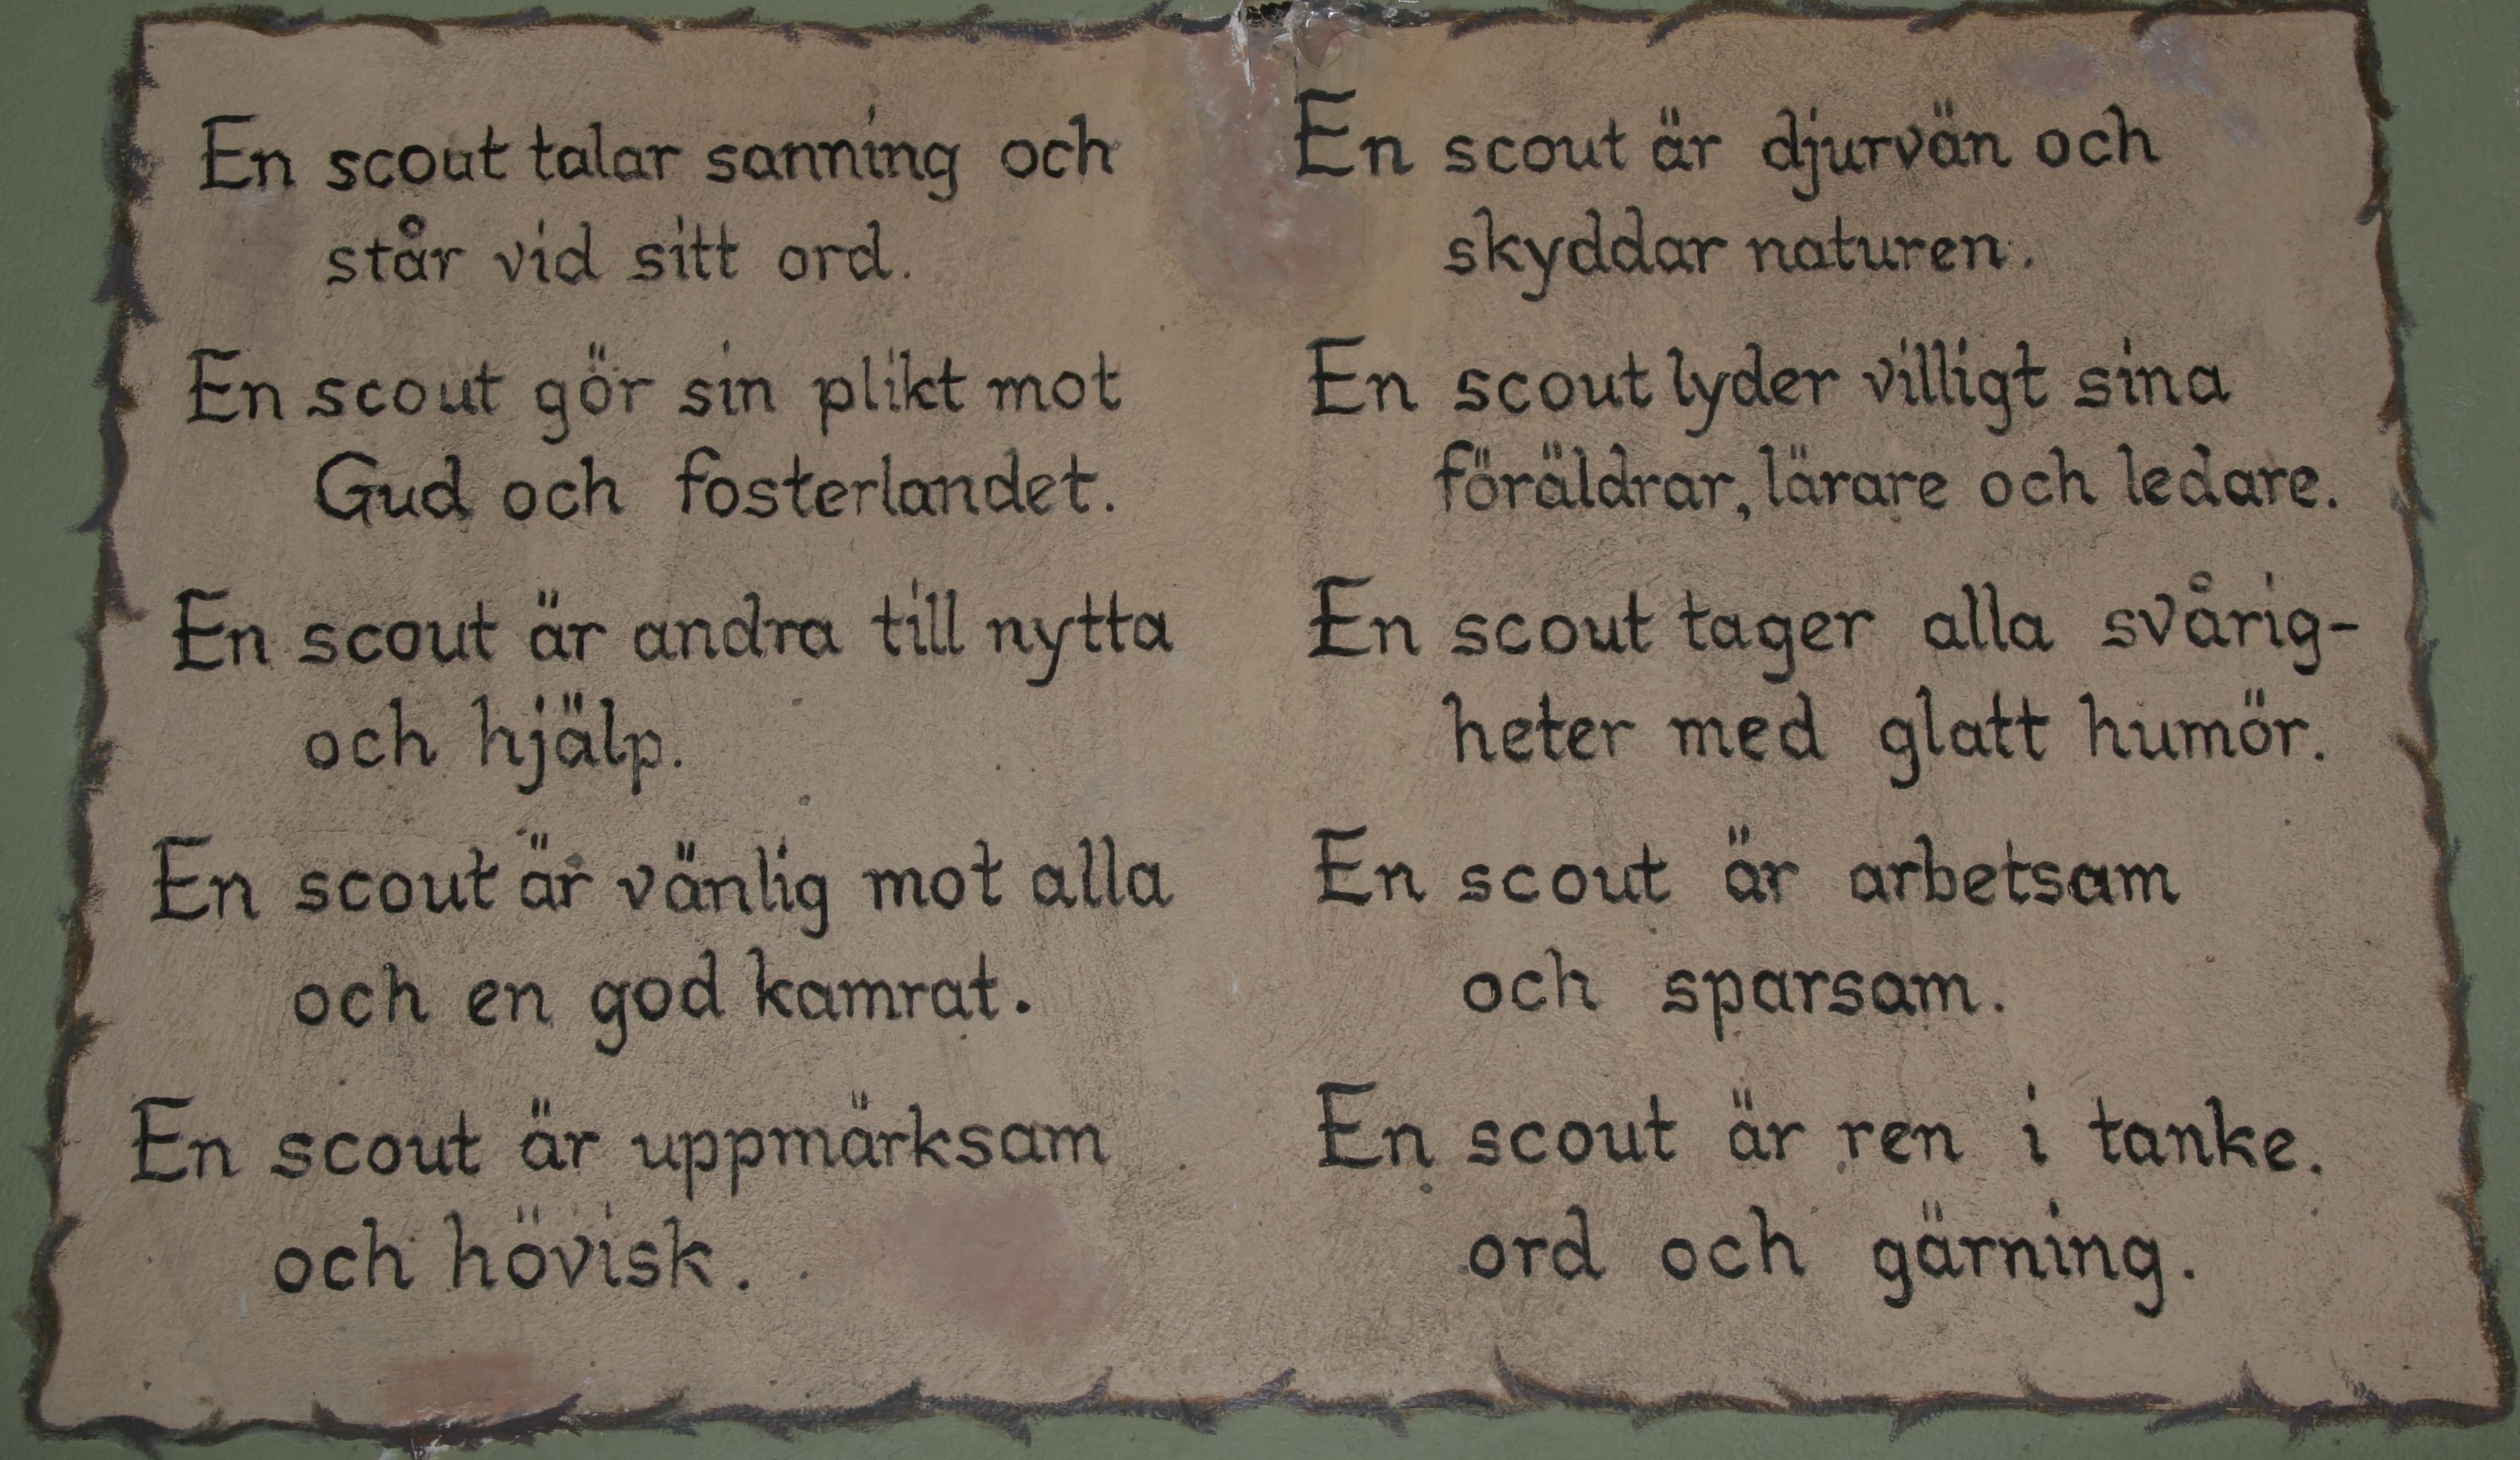 En scout talar sanning och
står vid sitt ord.
En scout gör sin plikt mot
Gud och fosterlandet.
En scout är andra till nytta
och hjälp.
En scout är vänlig mot alla
och en god kamrat.
En scout är uppmärksam
och hövisk.
En scout är djurvän och
skyddar naturen.
En scout lyder villigt sina
föräldrar, lärare och ledare.
En scout tager alla svårig-
heter med glatt humör.
En scout är arbetsam
och sparsam.
En scout är ren i tanke.
ord och gärning.